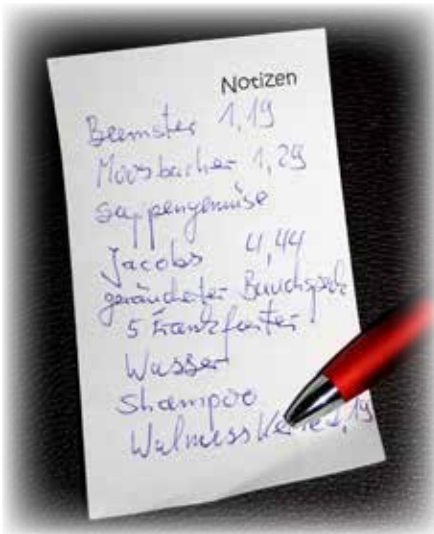 Notizen
Beemster 1,19
Moosbacher 1,29
Suppengemüse
Jacobs 4,44
geräucherter Bauchspeck
5 Frankfurter
Wasser
Shampoo
,19